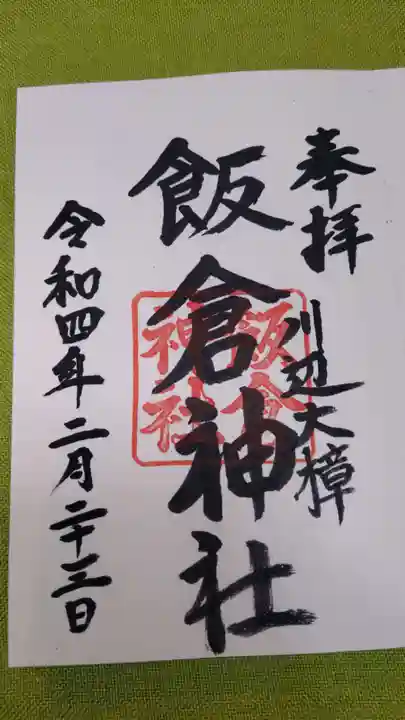 奉拝
川辺大樟
飯倉神社
飯倉神社
令和四年二月二十三日